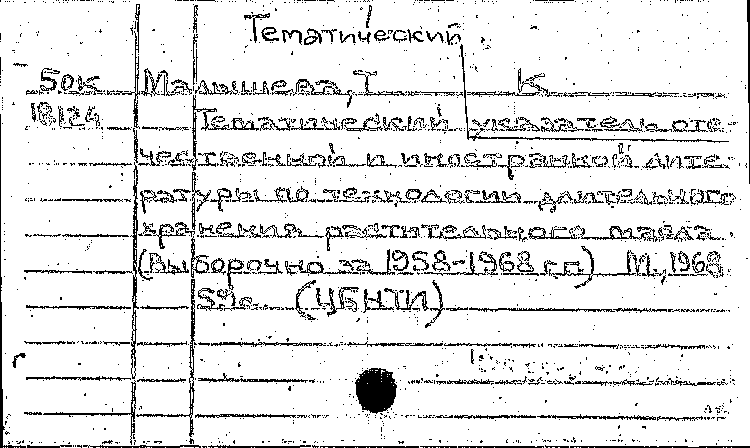 Тематический
50к Малышева, Т К
18124 Тематический указатель оте-
чественной и иностранной лите-
ратуры по технологии длительного
хранения растительного масла.
(Выборочно за 1958-1968 г.г.) М., 1968
59с. (ЦБНТИ)